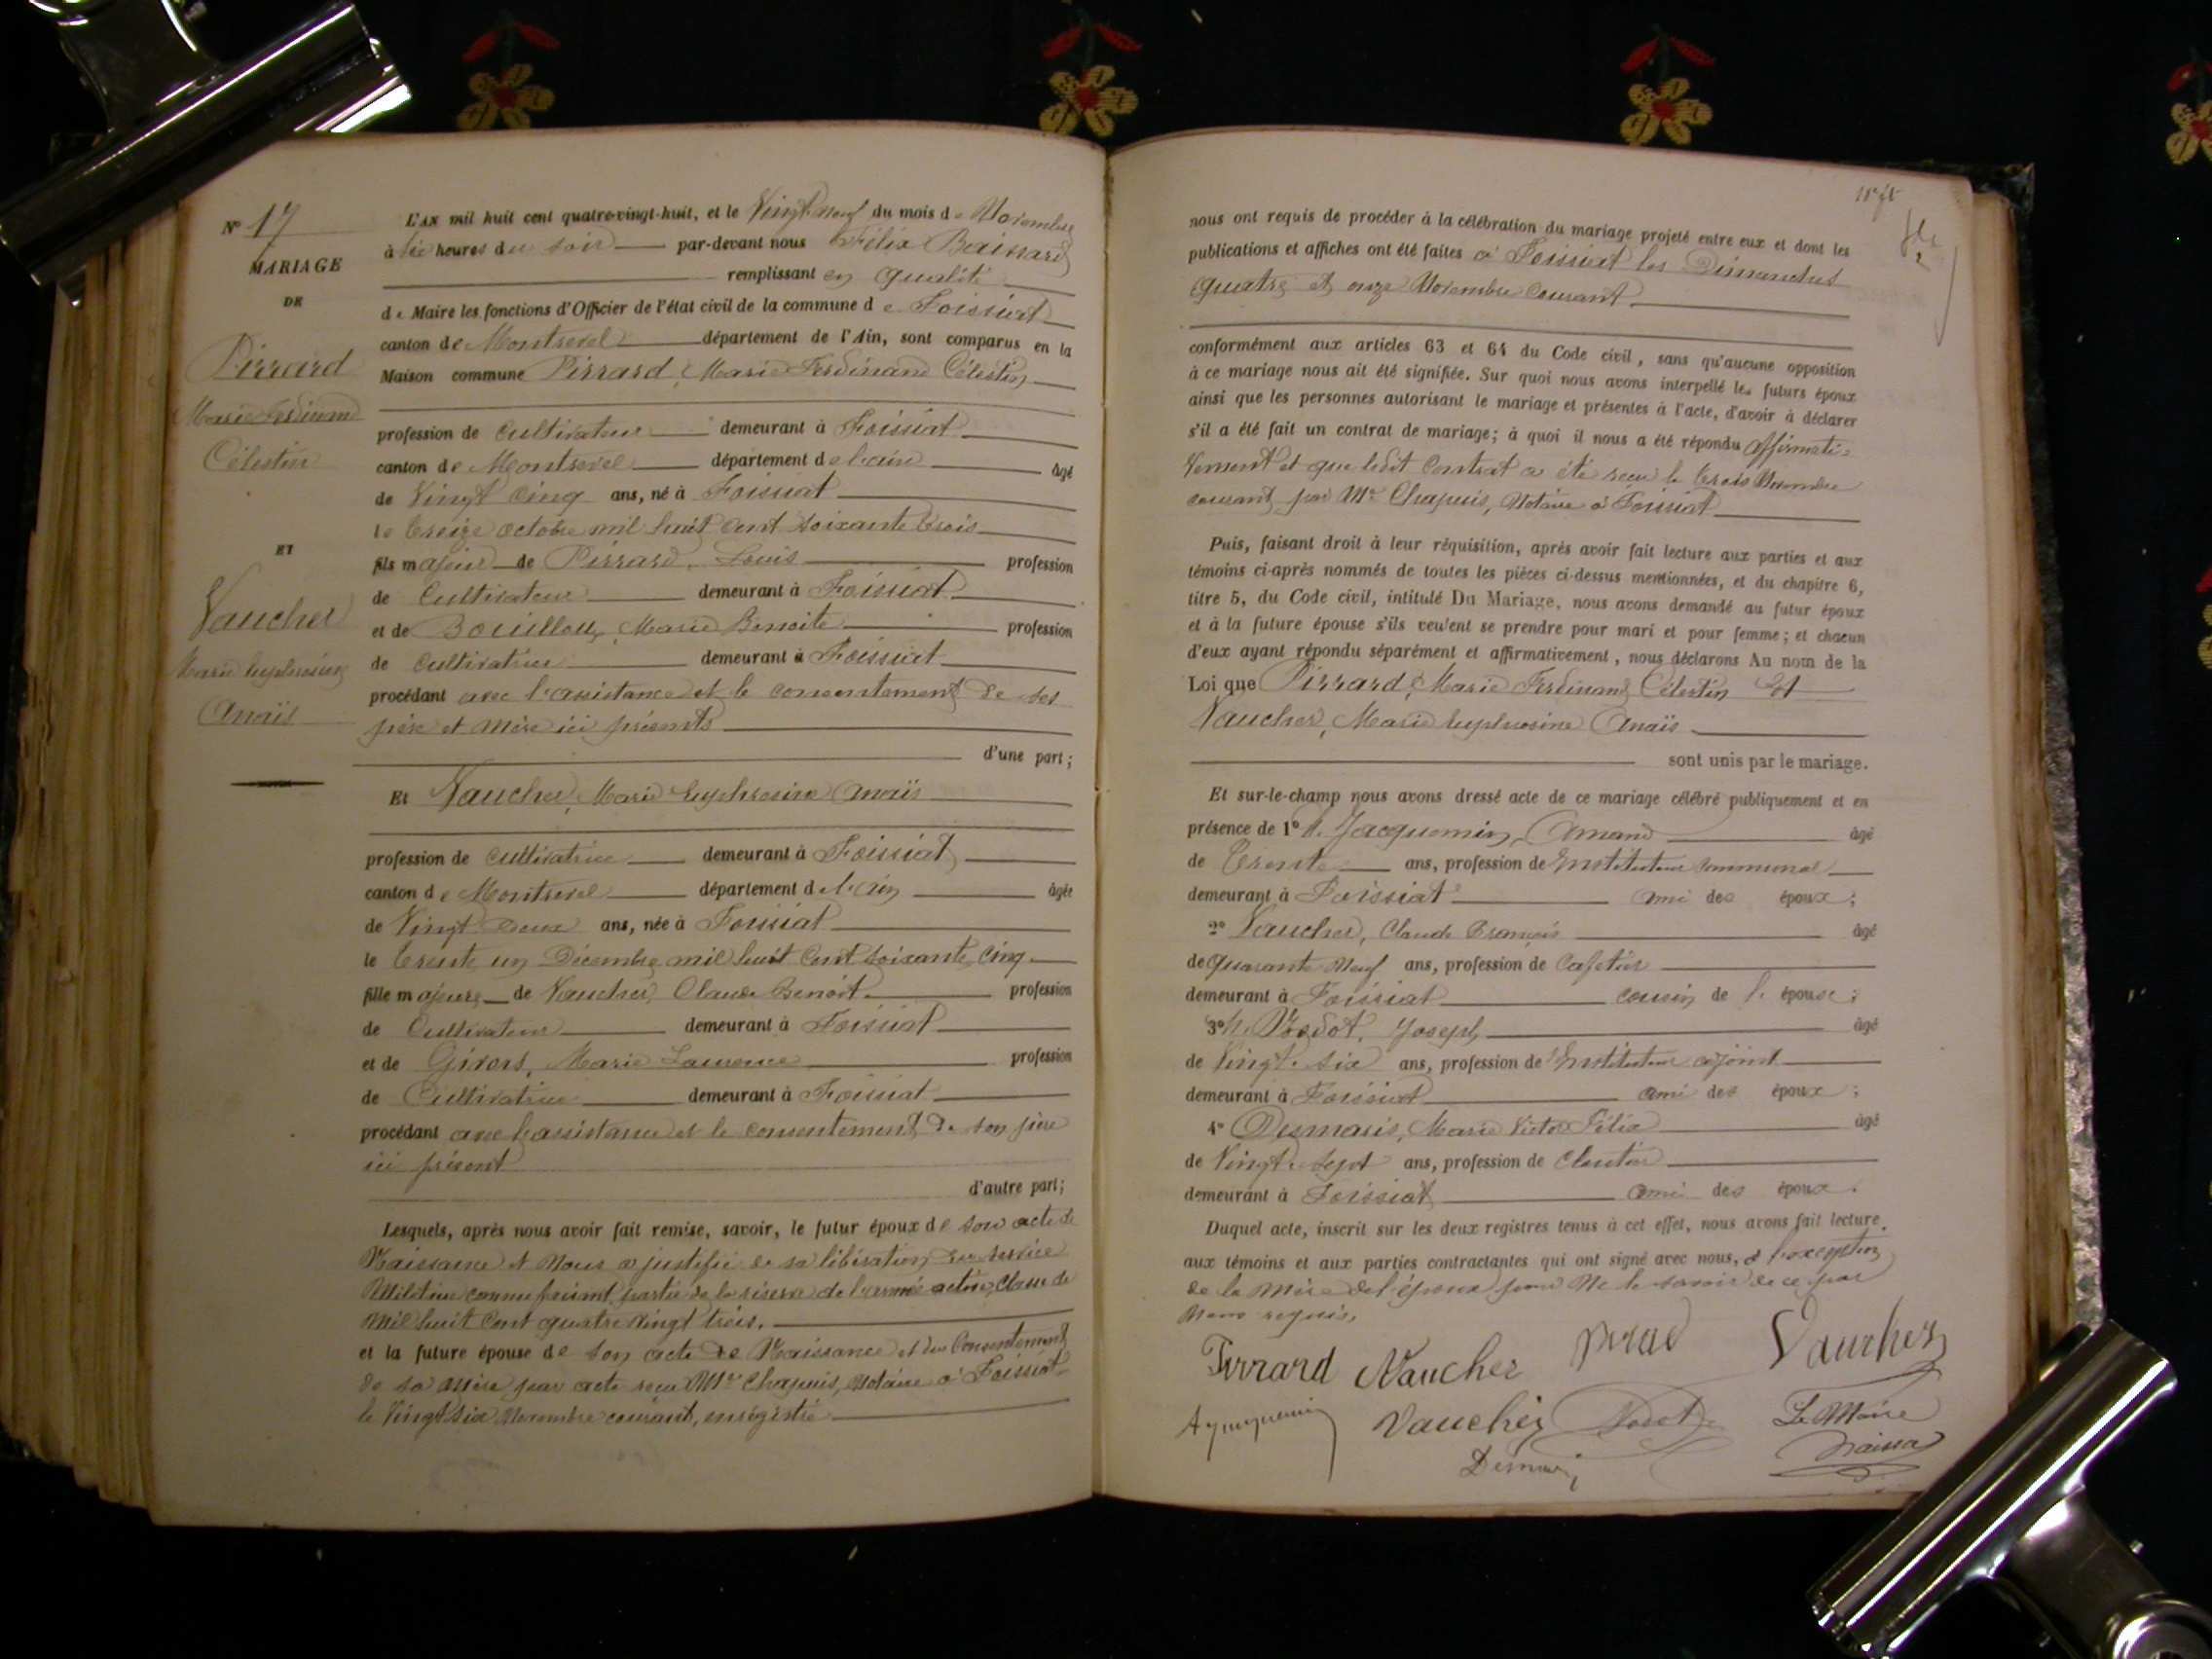 N° 17
MARIAGE
DE
Pirrard
Marie Ferdinand
Célestin
ET
Vaucher
Marie Euphrosine
Anaïs
L'AN mil huit cent quatre-vingt-huit, et le Vingt neuf du mois de Novembre
à six heures du soir par-devant nous Félix
remplissant en qualité
de Maire les fonctions d'Officier de l'état civil de la commune de Foissiat
canton de Montrevel département de l'Ain, sont comparus en la
Maison commune Pirrard, Marie Ferdinand Célestin
profession de Cultivateur demeurant à Foissiat
canton de Montrevel département de l'ain âgé
de Vingt Cinq ans, né à Foissiat
le treize octobre mil huit cent soixante trois
fils majeur de Pirrard, Louis profession
de Cultivateur demeurant à Foissiat
et de Bouilloux, Marie Benoite profession
de Cultivatrice demeurant à Foissiat
procédant avec l'assistance et le consentement de ses
père et mère ici présents
d'une part;
Et Vaucher, Marie Euphrosine Anaïs
profession de Cultivatrice demeurant à Foissiat
canton de Montrevel département de l'Ain âgée
de Vingt Deux ans, née à Foissiat
le trente un Décembre mil huit Cent Soixante Cinq
fille majeure de Vaucher, Claude Benoit profession
de Cultivateur demeurant à Foissiat
et de Givors, Marie Laurence profession
de Cultivatrice demeurant à Foissiat
procédant avec l'assistance et le consentement de son père
ici présent
d'autre part;
Lesquels, après nous avoir fait remise, savoir, le futur époux de son acte de
Naissance et Nous a justifié de sa libération du service
Militaire comme faisant partie de la réserve de l'armée active, Classe de
Mil huit Cent quatre vingt trois.
et la future épouse de son acte de Naissance et du Consentement
de sa mère par acte reçu Me Chapuis, Notaire à Foissiat
le Vingt six Novembre courant, enregistré
nous ont requis de procéder à la célébration du mariage projeté entre eux et dont les
publications et affiches ont été faites à Foissiat les Dimanches
quatre et onze Novembre Courant
conformément aux articles 63 et 64 du Code civil, sans qu'aucune opposition
à ce mariage nous ait été signifiée. Sur quoi nous avons interpellé les futurs époux
ainsi que les personnes autorisant le mariage et présentes à l'acte, d'avoir à déclarer
s'il a été fait un contrat de mariage; à quoi il nous a été répondu affirmati-
vement et que ledit Contrat a été reçu le trois Novembre
courant par Me Chapuis, Notaire à Foissiat
Puis, faisant droit à leur réquisition, après avoir fait lecture aux parties et aux
témoins ci-après nommés de toutes les pièces ci-dessus mentionnées, et du chapitre 6,
titre 5, du Code civil, intitulé Du Mariage, nous avons demandé au futur époux
et à la future épouse s'ils veulent se prendre pour mari et pour femme; et chacun
d'eux ayant répondu séparément et affirmativement, nous déclarons Au nom de la
Loi que Pirrard, Marie Ferdinand Célestin Et
Vaucher, Marie Euphrosine Anaïs
sont unis par le mariage.
Et sur-le-champ nous avons dressé acte de ce mariage célébré publiquement et en
présence de 1° M. Jacquemin, Amand âgé
de Trente ans, profession de Instituteur communal
demeurant à Foissiat ami des époux;
2° Vaucher, Claude François âgé
de Quarante Neuf ans, profession de Cafetier
demeurant à Foissiat cousin de l'épouse;
3° M. Vodot, Joseph âgé
de Vingt six ans, profession de Instituteur adjoint
demeurant à Foissiat ami des époux;
4° Desmaris, Marie Victor Félix âgé
de Vingt Sept ans, profession de
demeurant à Foissiat ami des époux.
Duquel acte, inscrit sur les deux registres tenus à cet effet, nous avons fait lecture
aux témoins et aux parties contractantes qui ont signé avec nous, à l'exception
de la Mère de l'époux pour Ne le savoir de ce par
Nous requis.
Pirrard Vaucher Vaucher
Vaucher Vodot Le Maire